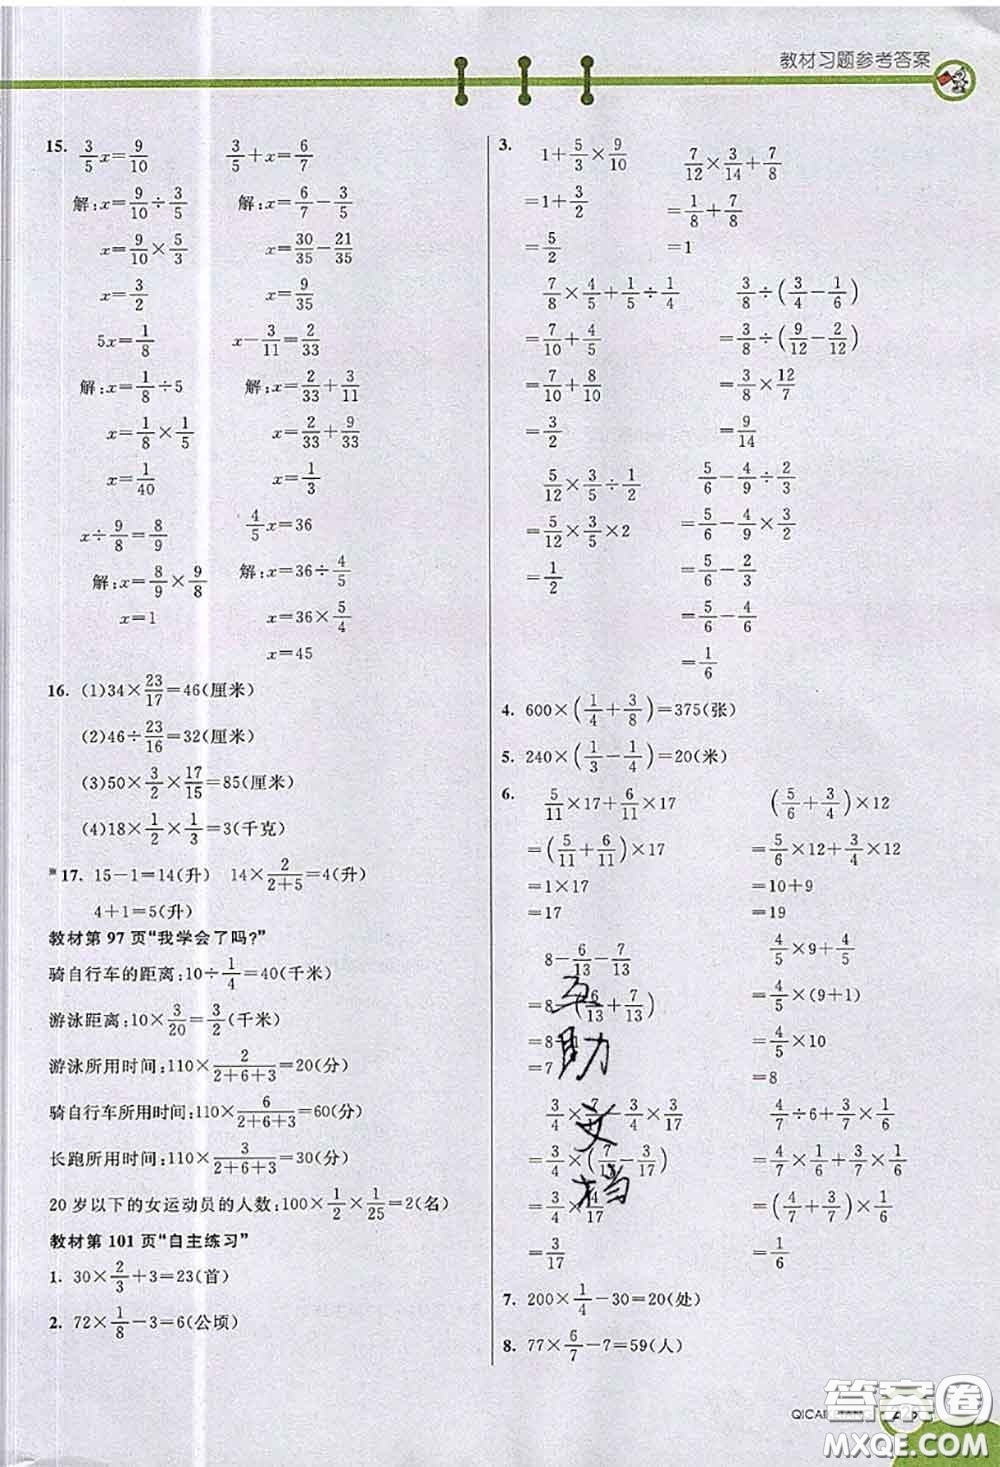 教材习题参考答案
15. 3/5x=9/10    3/5+x=6/7
解:x=9/10÷3/5    解:x=6/7-3/5
x=9/10×5/3    x=30/35-21/35
x=3/2    x=9/35
5x=1/8    x-3/11=2/33
解:x=1/8÷5    解:x=2/33+3/11
x=1/8×1/5    x=2/33+9/33
x=1/40    x=1/3
x÷9/8=8/9    4/5x=36
解:x=8/9×9/8    解:x=36÷4/5
x=1    x=36×5/4
x=45
16. (1)34×23/17=46(厘米)
(2)46÷23/16=32(厘米)
(3)50×3/2×17/15=85(厘米)
(4)18×1/2×1/3=3(千克)
*17. 15-1=14(升)  14×2/(2+5)=4(升)
4+1=5(升)
教材第 97 页“我学会了吗?”
骑自行车的距离:10÷1/4=40(千米)
游泳距离:10×3/20=3/2(千米)
游泳所用时间:110×2/(2+6+3)=20(分)
骑自行车所用时间:110×6/(2+6+3)=60(分)
长跑所用时间:110×3/(2+6+3)=30(分)
20 岁以下的女运动员的人数:100×1/2×1/25=2(名)
教材第 101 页“自主练习”
1. 30×2/3+3=23(首)
2. 72×1/8-3=6(公顷)
3. 1+5/3×9/10    7/12×3/14+7/8
=1+3/2    =1/8+7/8
=5/2    =1
7/8×4/5+1/5÷1/4    3/8÷(3/4-1/6)
=7/10+4/5    =3/8÷(9/12-2/12)
=7/10+8/10    =3/8×12/7
=3/2    =9/14
5/12×3/5÷1/2    5/6-4/9÷2/3
=5/12×3/5×2    =5/6-4/9×3/2
=1/2    =5/6-2/3
=5/6-4/6
=1/6
4. 600×(1/4+3/8)=375(张)
5. 240×(1/3-1/4)=20(米)
6. 5/11×17+6/11×17    (5/6+3/4)×12
=(5/11+6/11)×17    =5/6×12+3/4×12
=1×17    =10+9
=17    =19
8-6/13-7/13    4/5×9+4/5
=8-(6/13+7/13)    =4/5×(9+1)
=8-1    =4/5×10
=7    =8
3/4×7/17-3/4×3/17    4/7÷6+3/7×1/6
=3/4×(7/17-3/17)    =4/7×1/6+3/7×1/6
=3/4×4/17    =(4/7+3/7)×1/6
=3/17    =1/6
互
助
文
档
7. 200×1/4-30=20(处)
8. 77×6/7-7=59(人)
答案圈
MXQE.COM